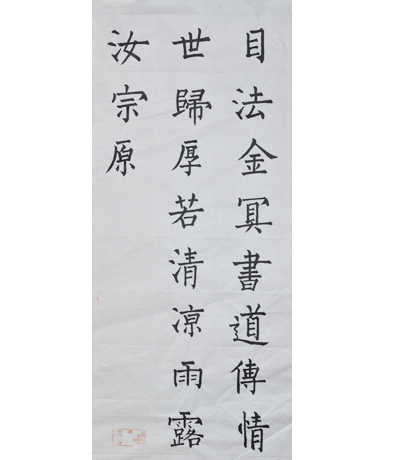 目法金冥書道傳情
世歸厚若清凉雨露
汝宗原